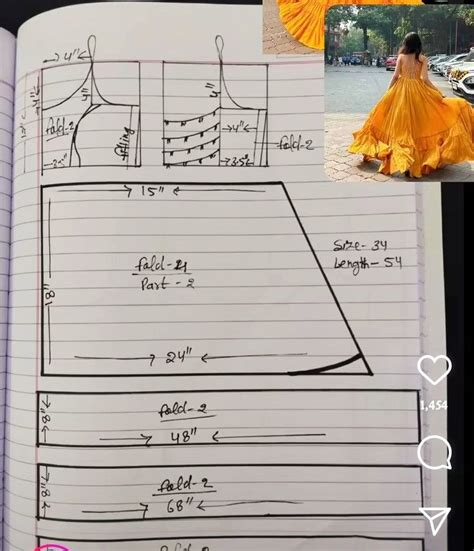 4"
4"
4"
4"
4"
fold-2
fitting
2.5"
4"
3.5"
fold-2
15"
Size - 34
Length - 54
fold-4
Part - 2
18"
24"
fold-2
8"
48"
fold-2
8"
68"
fold-2
1,454